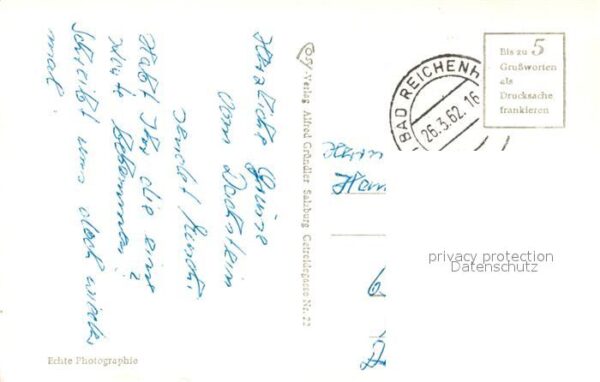 Herzliche Grüsse
vom Dachstein
sendet
Habt Ihr die eine
Karte bekommen?
Schreibt uns doch wieder
mal.
Echte Photographie
-Verlag Alfred Gründler Salzburg Getreidegasse Nr. 22
BAD REICHENH
26.3.62.16
Bis zu 5
Grußworten
als
Drucksache
frankieren
Herrn
privacy protection
Datenschutz